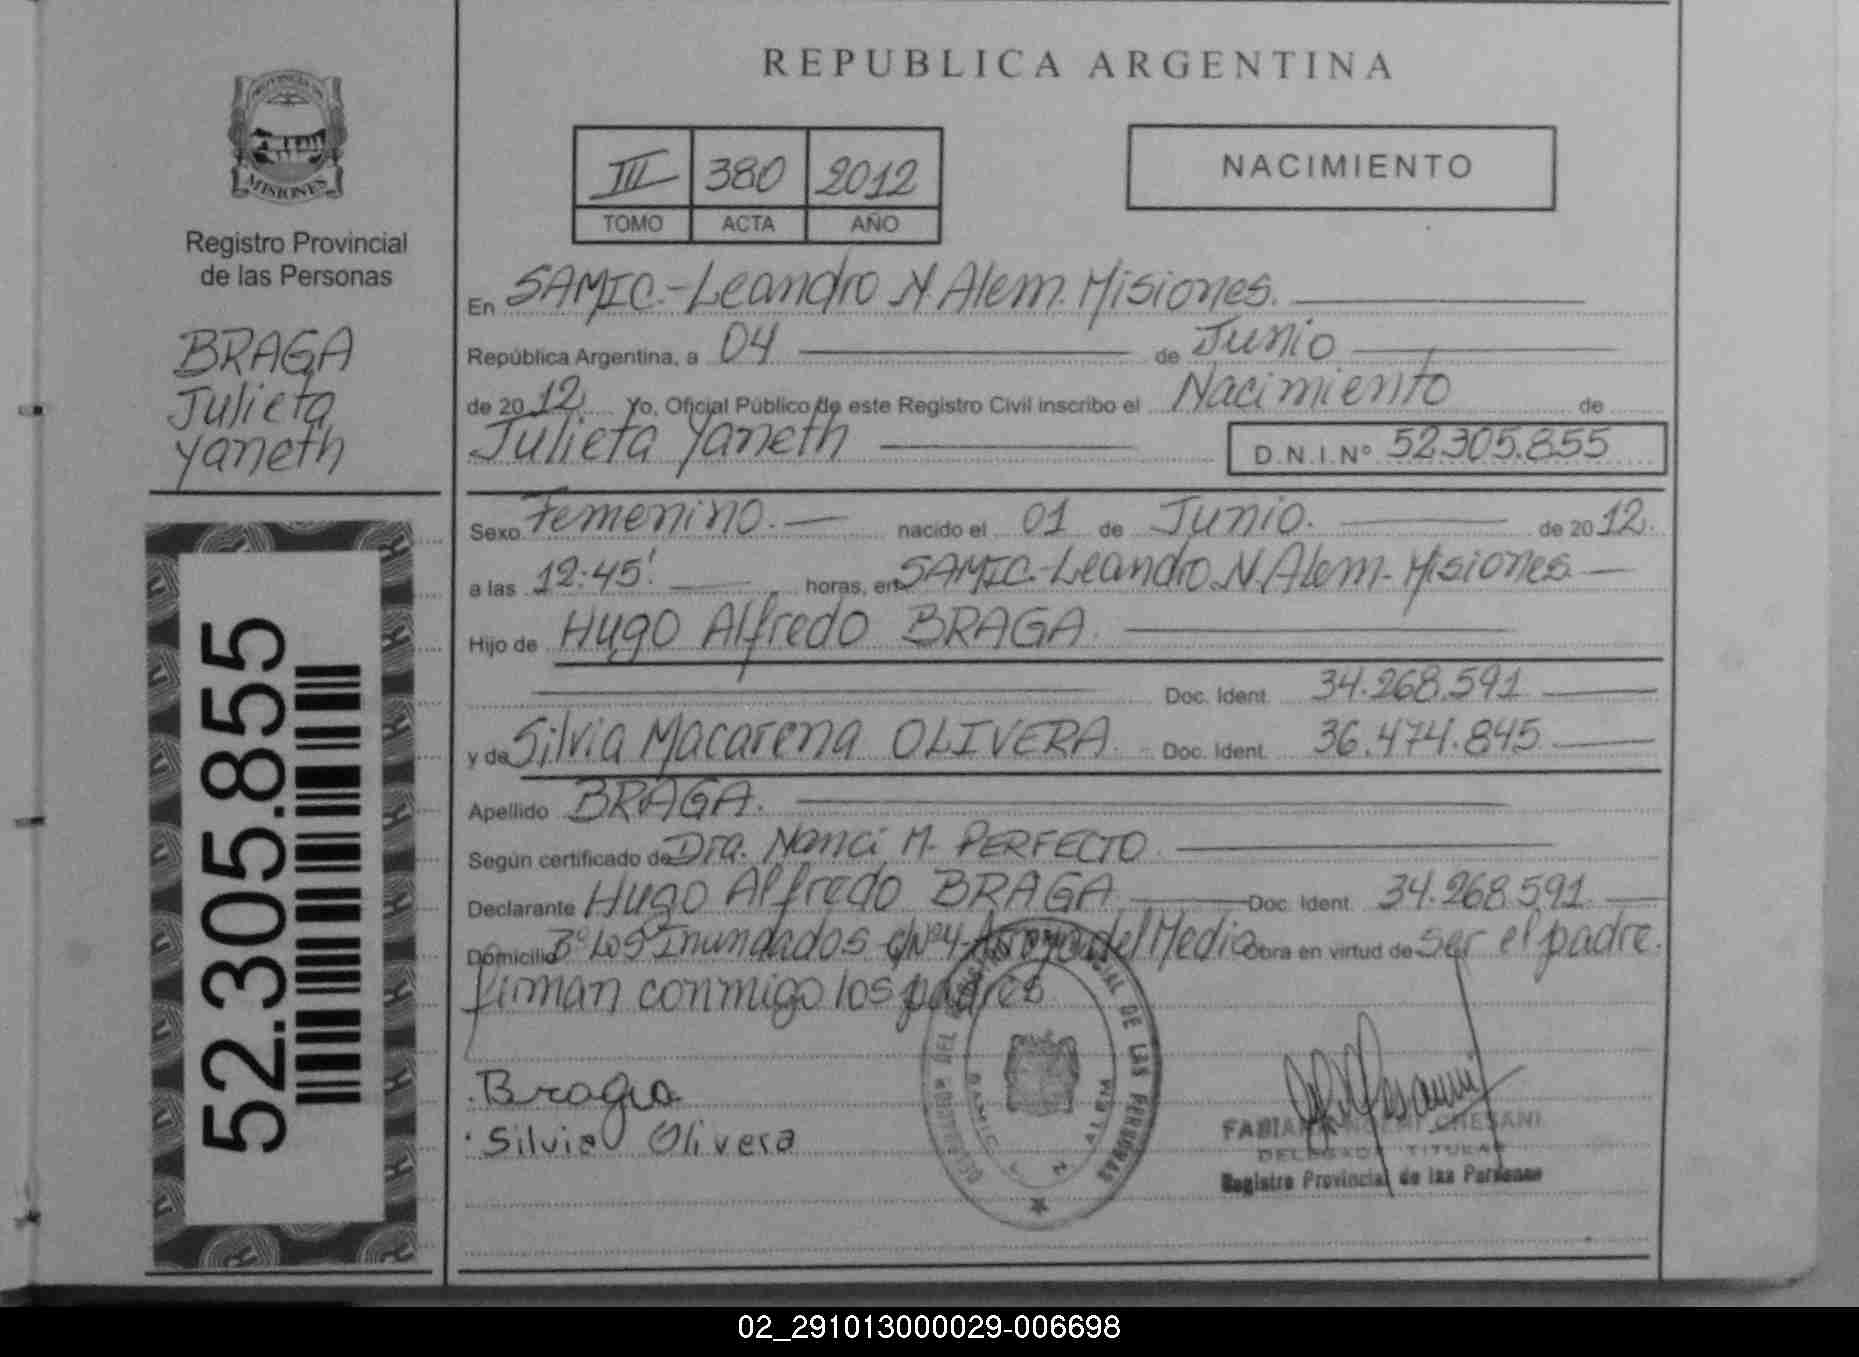 REPUBLICA ARGENTINA
MISIONES
Registro Provincial
de las Personas
BRAGA
Julieta
Yaneth
52.305.855
III 380 2012
TOMO ACTA AÑO
NACIMIENTO
En SAMIC.-Leandro N. Alem. Misiones.
República Argentina, a 04 de Junio
de 2012 Yo, Oficial Público de este Registro Civil inscribo el Nacimiento de
Julieta Yaneth D.N.I.Nº 52.305.855
Sexo Femenino. nacido el 01 de Junio. de 2012.
a las 12:45' horas, en SAMIC.-Leandro N. Alem.- Misiones
Hijo de Hugo Alfredo BRAGA.
Doc. Ident. 34.268.591
y de Silvia Macarena OLIVERA. Doc. Ident. 36.474.845
Apellido BRAGA.
Según certificado de Dra. Nanci M. PERFECTO
Declarante Hugo Alfredo BRAGA Doc. Ident. 34.268.591
Domicilio Bº Los Inundados Nº4 Arroyo del Medio Obra en virtud de ser el padre.
firman conmigo los padres
Braga
Silvia Olivera
DEL REGISTRO PROVINCIAL DE LAS PERSONAS
SAMIC L N ALEM
FABIANA NOEMI CHESANI
DELEGADA TITULAR
Registro Provincial de las Personas
02_291013000029-006698